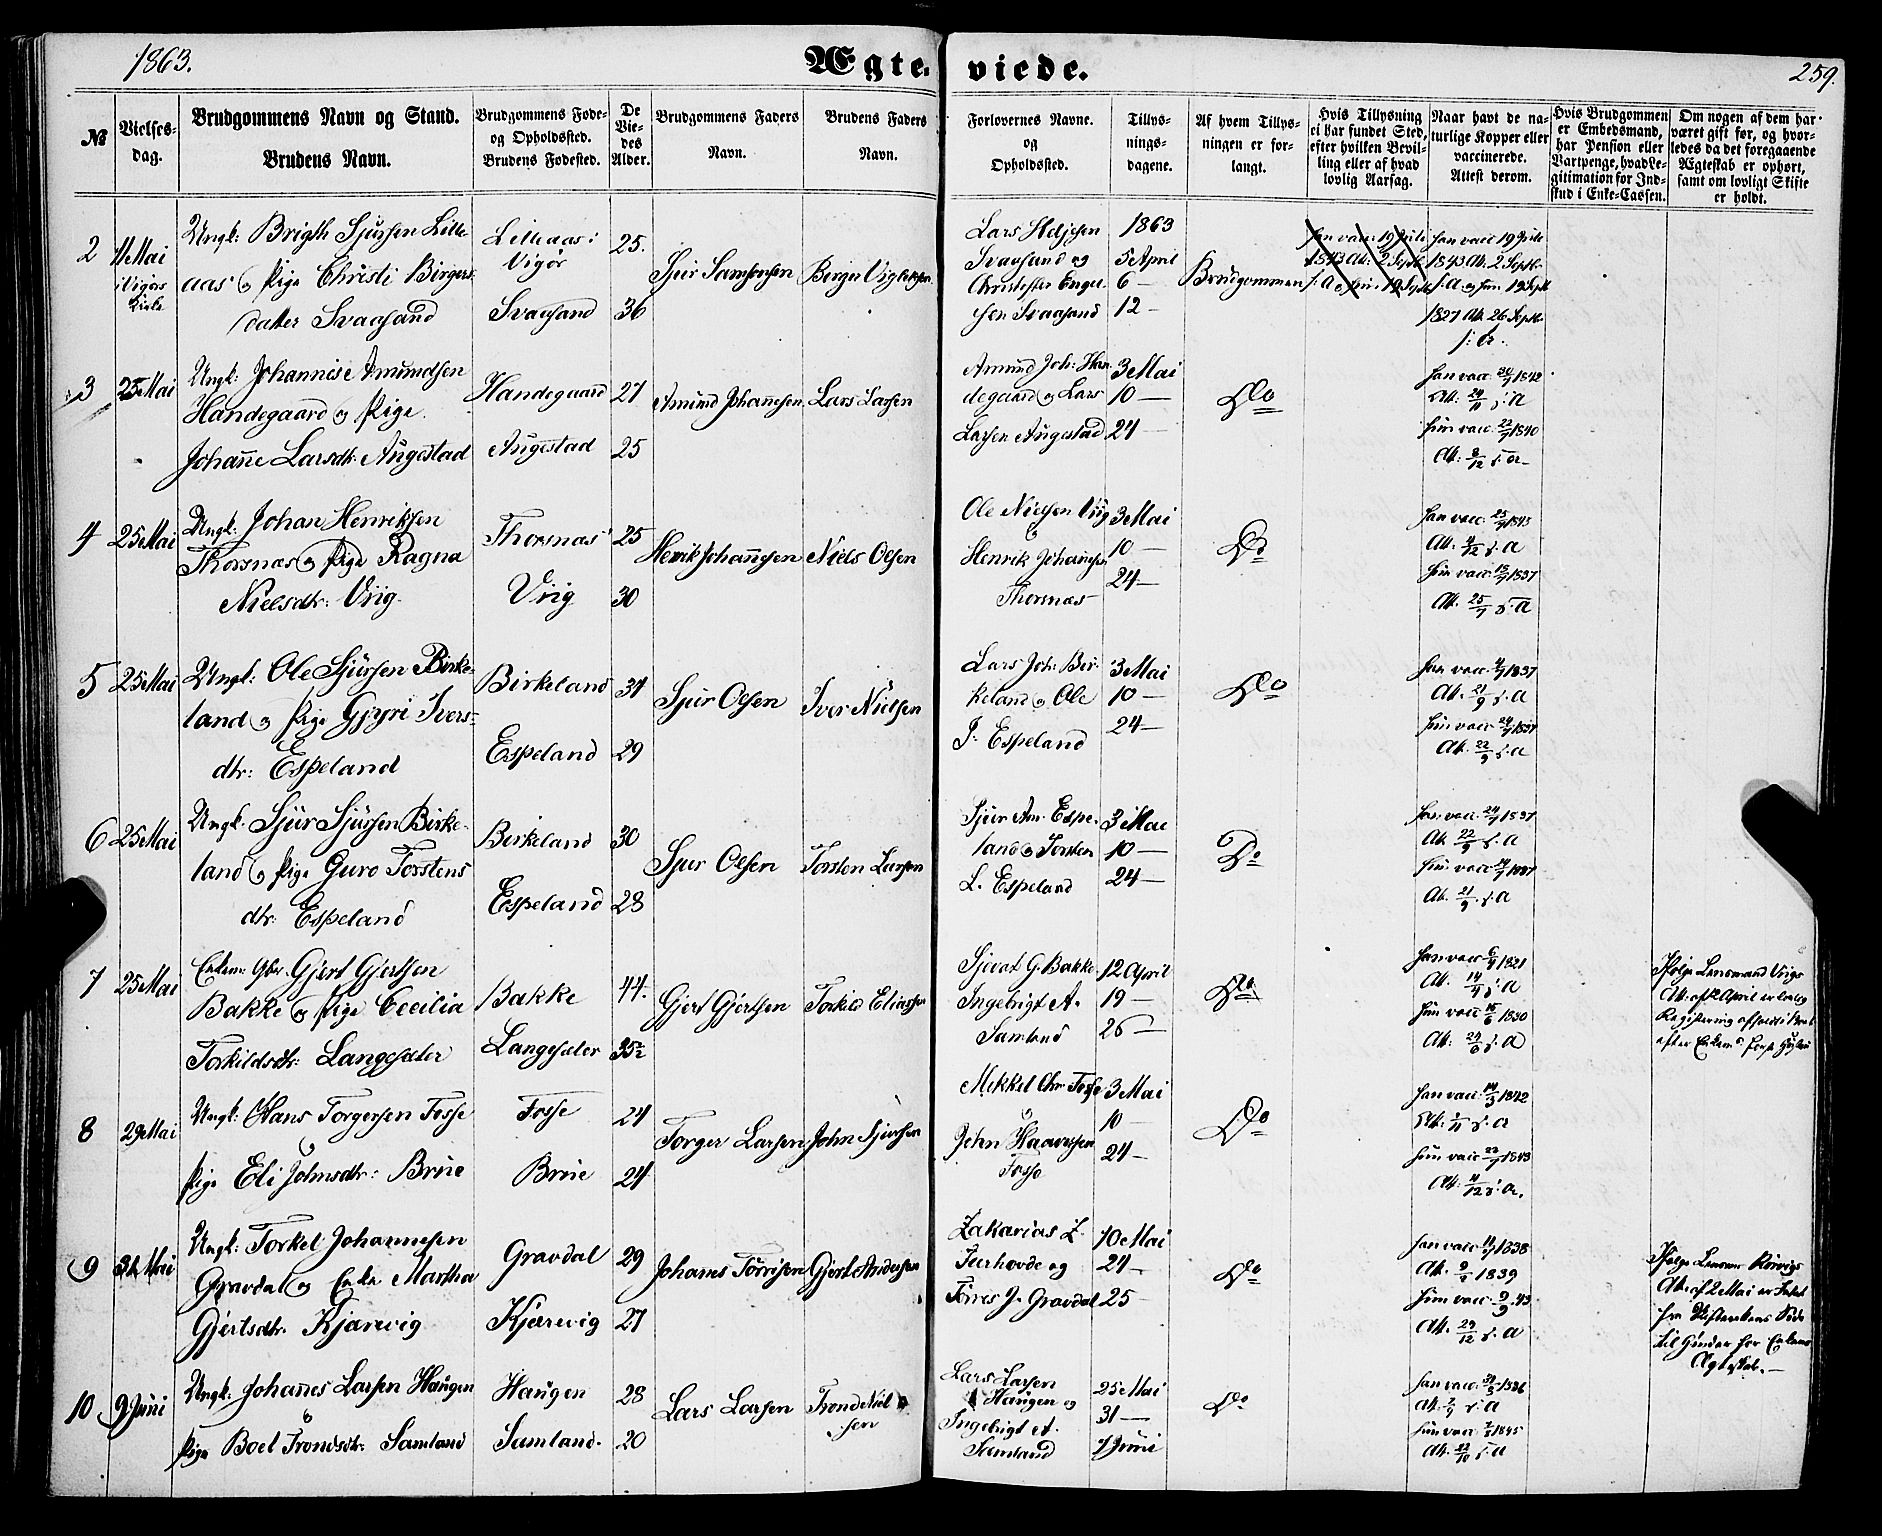 1863.
Ægte-viede.
259.
№
Vielses-dag.
Brudgommens Navn og Stand.
Brudens Navn.
Brudgommens Føde- og Opholdssted.
Brudens Fødested.
De Vie-des Alder.
Brudgommens Faders Navn.
Brudens Faders Navn.
Forlovernes Navne. og Opholdssted.
Tillys-nings-dagene.
Af hvem Tillys-ningen er for-langt.
Hvis Tillysning ei har fundet Sted, efter hvilken Bevil-ling eller af hvad lovlig Aarsag.
Naar havt de na-turlige Kopper eller vaccinerede. Attest derom.
Hvis Brudgommen er Embedsmand, har Pension eller Vartpenge, hvad Le-gitimation for Ind-skud i Enke-Cassen.
Om nogen af dem har været gift før, og hvor-ledes da det foregaaende Ægteskab er ophørt, samt om lovligt Skifte er holdt.
2
11 Mai
i Vigørs Kirke
Ungk: Brigth Sjursen Lille-
aas og Pige Christi Birgers
datter Svaasand
Lilleaas i
Vigør
Svaasand
25.
36
Sjur Samsonsen
Birger Vigleiksen
Lars Heljesen
Svaasand og
Christoffer Engel
sen Svaasand
1863
5 April
6 —
12 —
Brudgommen
han vacc 19 Juli
1843 At. 2 Septb.
s. A. og hun 19 Septb
han vacc 19 Juli
1843 At. 2 Septb.
s. A. og hun 19 Septb
1827 At. 26 Septb.
s: A.
3
25 Mai
Ungk: Johannis Amundsen
Handegaard og Pige
Johanne Larsdtr: Augestad
Handegaard
Augestad
27
25
Amund Johannesen
Lars Larsen
Amund Joh: Han
degaard og Lars
Larsen Augestad
3 Mai
10 —
24 —
Do
han vacc: 24/9 1842
At: 29/11 s: A
hun vacc: 22/9 1840
At: 8/12 s: A
4
25 Mai
Ungk: Johan Henriksen
Thorsnæs og Pige Ragna
Nielsdtr: Viig
Thorsnæs
Viig
25
30
Henrik Johannesen
Niels Olsen
Ole Nielsen Viig
Henrik Johannesen
Thorsnæs
3 Mai
10 —
24 —
Do
han vacc: 25/9 1843
At: 4/12 s: A
hun vacc: 15/7 1837
At. 25/7 s: A
5
25 Mai
Ungk: Ole Sjursen Birke-
land og Pige Gjyri Ivers-
dtr: Espeland
Birkeland
Espeland
31
29
Sjur Olsen
Iver Nielsen
Lars Joh: Bir-
keland og Ole
I. Espeland
3 Mai
10 —
24 —
Do
At. 21/9 s: A
At. 22/9 s: A
6
25 Mai
Ungk. Sjur Sjursen Birke-
land og Pige Guro Torstens
dtr: Espeland
Birkeland
Espeland
30
28
Sjur Olsen
Torsten Larsen
Sjur Am. Espe-
land og Torsten
L. Espeland
3 Mai
10 —
24 —
Do
han vacc: 24/7 1837
At 22/9 s: A
At. 21/9 s: A
7
25 Mai
Enkem: Gbr. Gjert Gjertsen
Bakke og Pige Cecilia
Torkildsdtr: Langesæter
Bakke
Langesæter
44.
35½
Gjert Gjertsen
Torkild Eliassen
Sjovat G. Bakke
Ingebrigt A.
Samland
12 April
19 —
26 —
Do
han vacc 6/9 1821
At. 14/9 s: A
hun vacc 15/6 1830
At: 24/6 s: A
Ifølge Lensmand Viigs
At. af 12 April er lovlig
Registrering afholdt i Boet
8
29 Mai
Ungk: Hans Torgersen Fosse
Pige Eli Johnsdtr: Brue
Fosse
Brue
24
24
Torger Larsen
John Sjursen
Mikkel Chr Fosse
John Haaversen
Fosse
3 Mai
10 —
24 —
Do
han vacc: 14/3 1842
hun vacc 22/7 1843
At: 4/12 s: A.
9
31 Mai
Ungk: Torkel Johannesen
Gravdal og Enke Martha
Gjertsdtr. Kjærevig
Gravdal
Kjærevig
29
27
Johannes Torrisen
Gjert Andersen
Zakarias L.
Teerhovde og
Torres J. Gravdal
10 Mai
24 —
25 —
Do
At. 9/9 1839
hun vacc: 9/9 43
At. 29/12 s: A
Ifølge Lensm: Rørvigs
At. af 2 Mai er Intet
fra Skifterettens Side
til Hinder for Enkens
Ægteskab.—
10
9 Juni
Ungk: Johannes Larsen Haugen
Pige Boel Trondsdtr: Samland
Haugen
Samland.
28
20
Lars Larsen
Trond Niel
sen
Lars Larsen
Haugen og
Ingebrigt A.
Samland
25 Mai
31 —
7 Juni
Do
hun vacc: 7/8 1845
At. 22/10 s: A